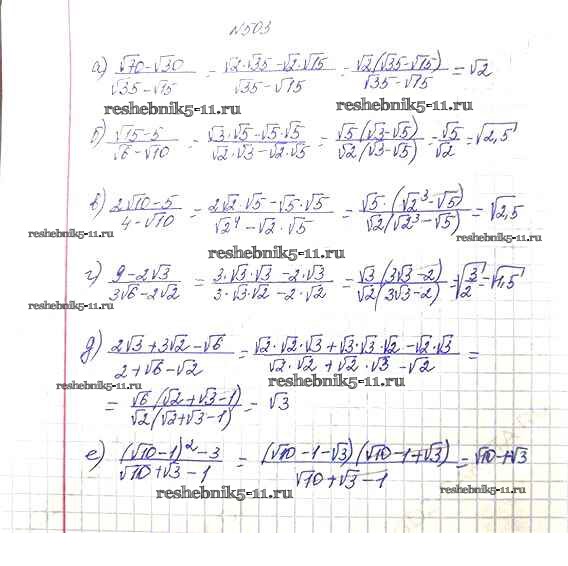 №503
а) (√70-√30)/(√35-√15) = (√2·√35-√2·√15)/(√35-√15) = √2(√35-√15)/(√35-√15) = √2
reshebnik5-11.ru reshebnik5-11.ru
б) (√15-5)/(√6-√10) = (√3·√5-√5·√5)/(√2·√3-√2·√5) = √5(√3-√5)/√2(√3-√5) = √5/√2 = √2,5
в) (2√10-5)/(4-√10) = (2√2·√5-√5·√5)/(√2⁴-√2·√5) = √5·(√2³-√5)/√2(√2³-√5) = √2,5
reshebnik5-11.ru reshebnik5-11.ru
reshebnik5-11.ru
г) (9-2√3)/(3√6-2√2) = (3·√3·√3-2·√3)/(3·√3·√2-2·√2) = √3(3√3-2)/√2(3√3-2) = √(3/2) = √1,5
reshebnik5-11.ru reshebnik5-11.ru
д) (2√3+3√2-√6)/(2+√6-√2) = (√2·√2·√3+√3·√3·√2-√2·√3)/(√2·√2+√2·√3-√2) =
reshebnik5-11.ru reshebnik5-11.ru
= √6(√2+√3-1)/√2(√2+√3-1) = √3
reshebnik5-11.ru
е) ((√10-1)²-3)/(√10+√3-1) = (√10-1-√3)(√10-1+√3)/(√10+√3-1) = √10-1-√3
reshebnik5-11.ru reshebnik5-11.ru